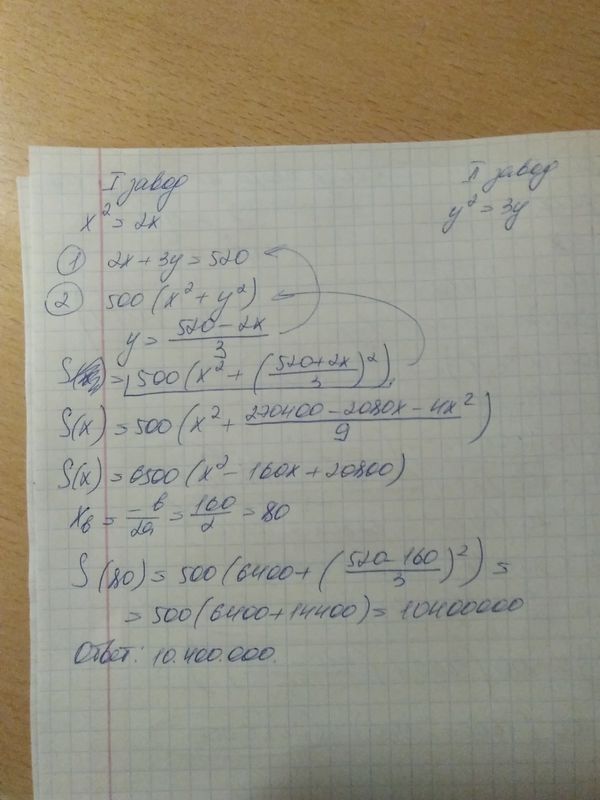 I завод II завод
x² = 2x y² = 3y
① 2x + 3y = 520
② 500 (x² + y²)
y = (520 - 2x)/3
S = 500 (x² + ((520 + 2x)/3)²)
S(x) = 500 (x² + (270400 - 2080x - 4x²)/9)
S(x) = 6500 (x² - 160x + 20800)
xв = -в/2a = 160/2 = 80
S(80) = 500 (6400 + ((520 - 160)/3)²) =
= 500 (6400 + 14400) = 10400000
Ответ: 10.400.000.